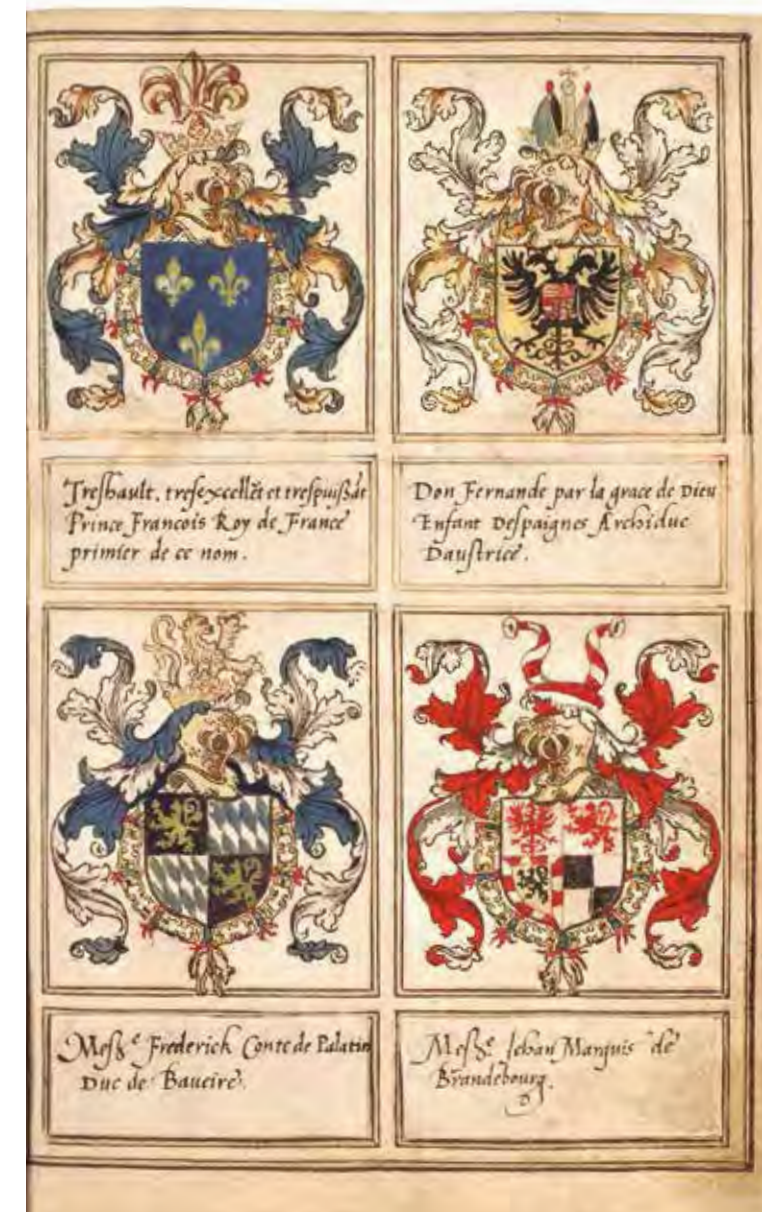 Treshault, tresexcellēt et trespuißāt
Prince Francois Roy de France
primier de ce nom.
Don Fernande par la grace de Dieu
Enfant Despaignes Archiduc
Daustrice.
Meß^e Frederick Conte de Palatin
Duc de Baueire.
Meß^e Jehan Marquis de
Brandebourg.